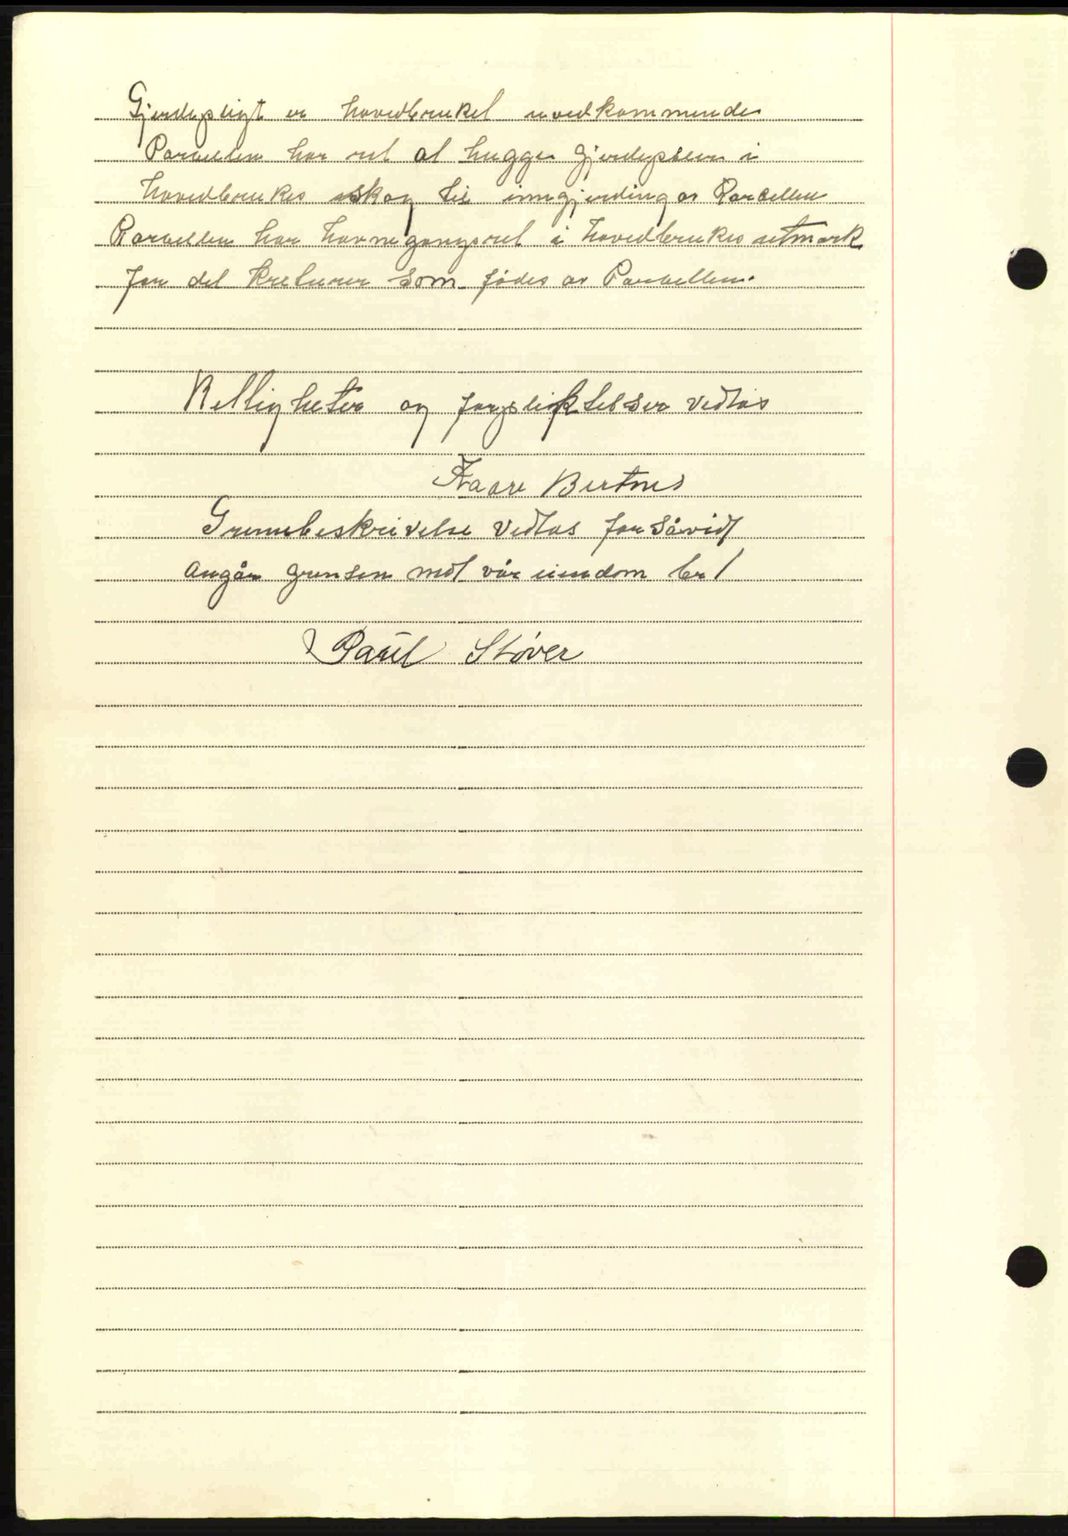 Gjerdepligt er hovedbruket uvedkommende
Parcellen har ret at hugge gjerdepsler i
hovedbrukes skog til inngjerding av Parcellen
Parcellen har havnegangsret i hovedbrukes utmark
for det kreturer som fødes av Parcellen.
Rettigheter og forpliktelser vedtas
Kaare Bertnes
Grensebeskrivelse vedtas forsåvidt
angår grensen mot vår eiendom br 1
Paul Støver